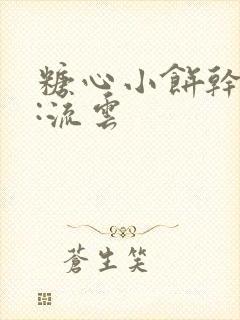 糖心小餅幹
:流雲
蒼生笑